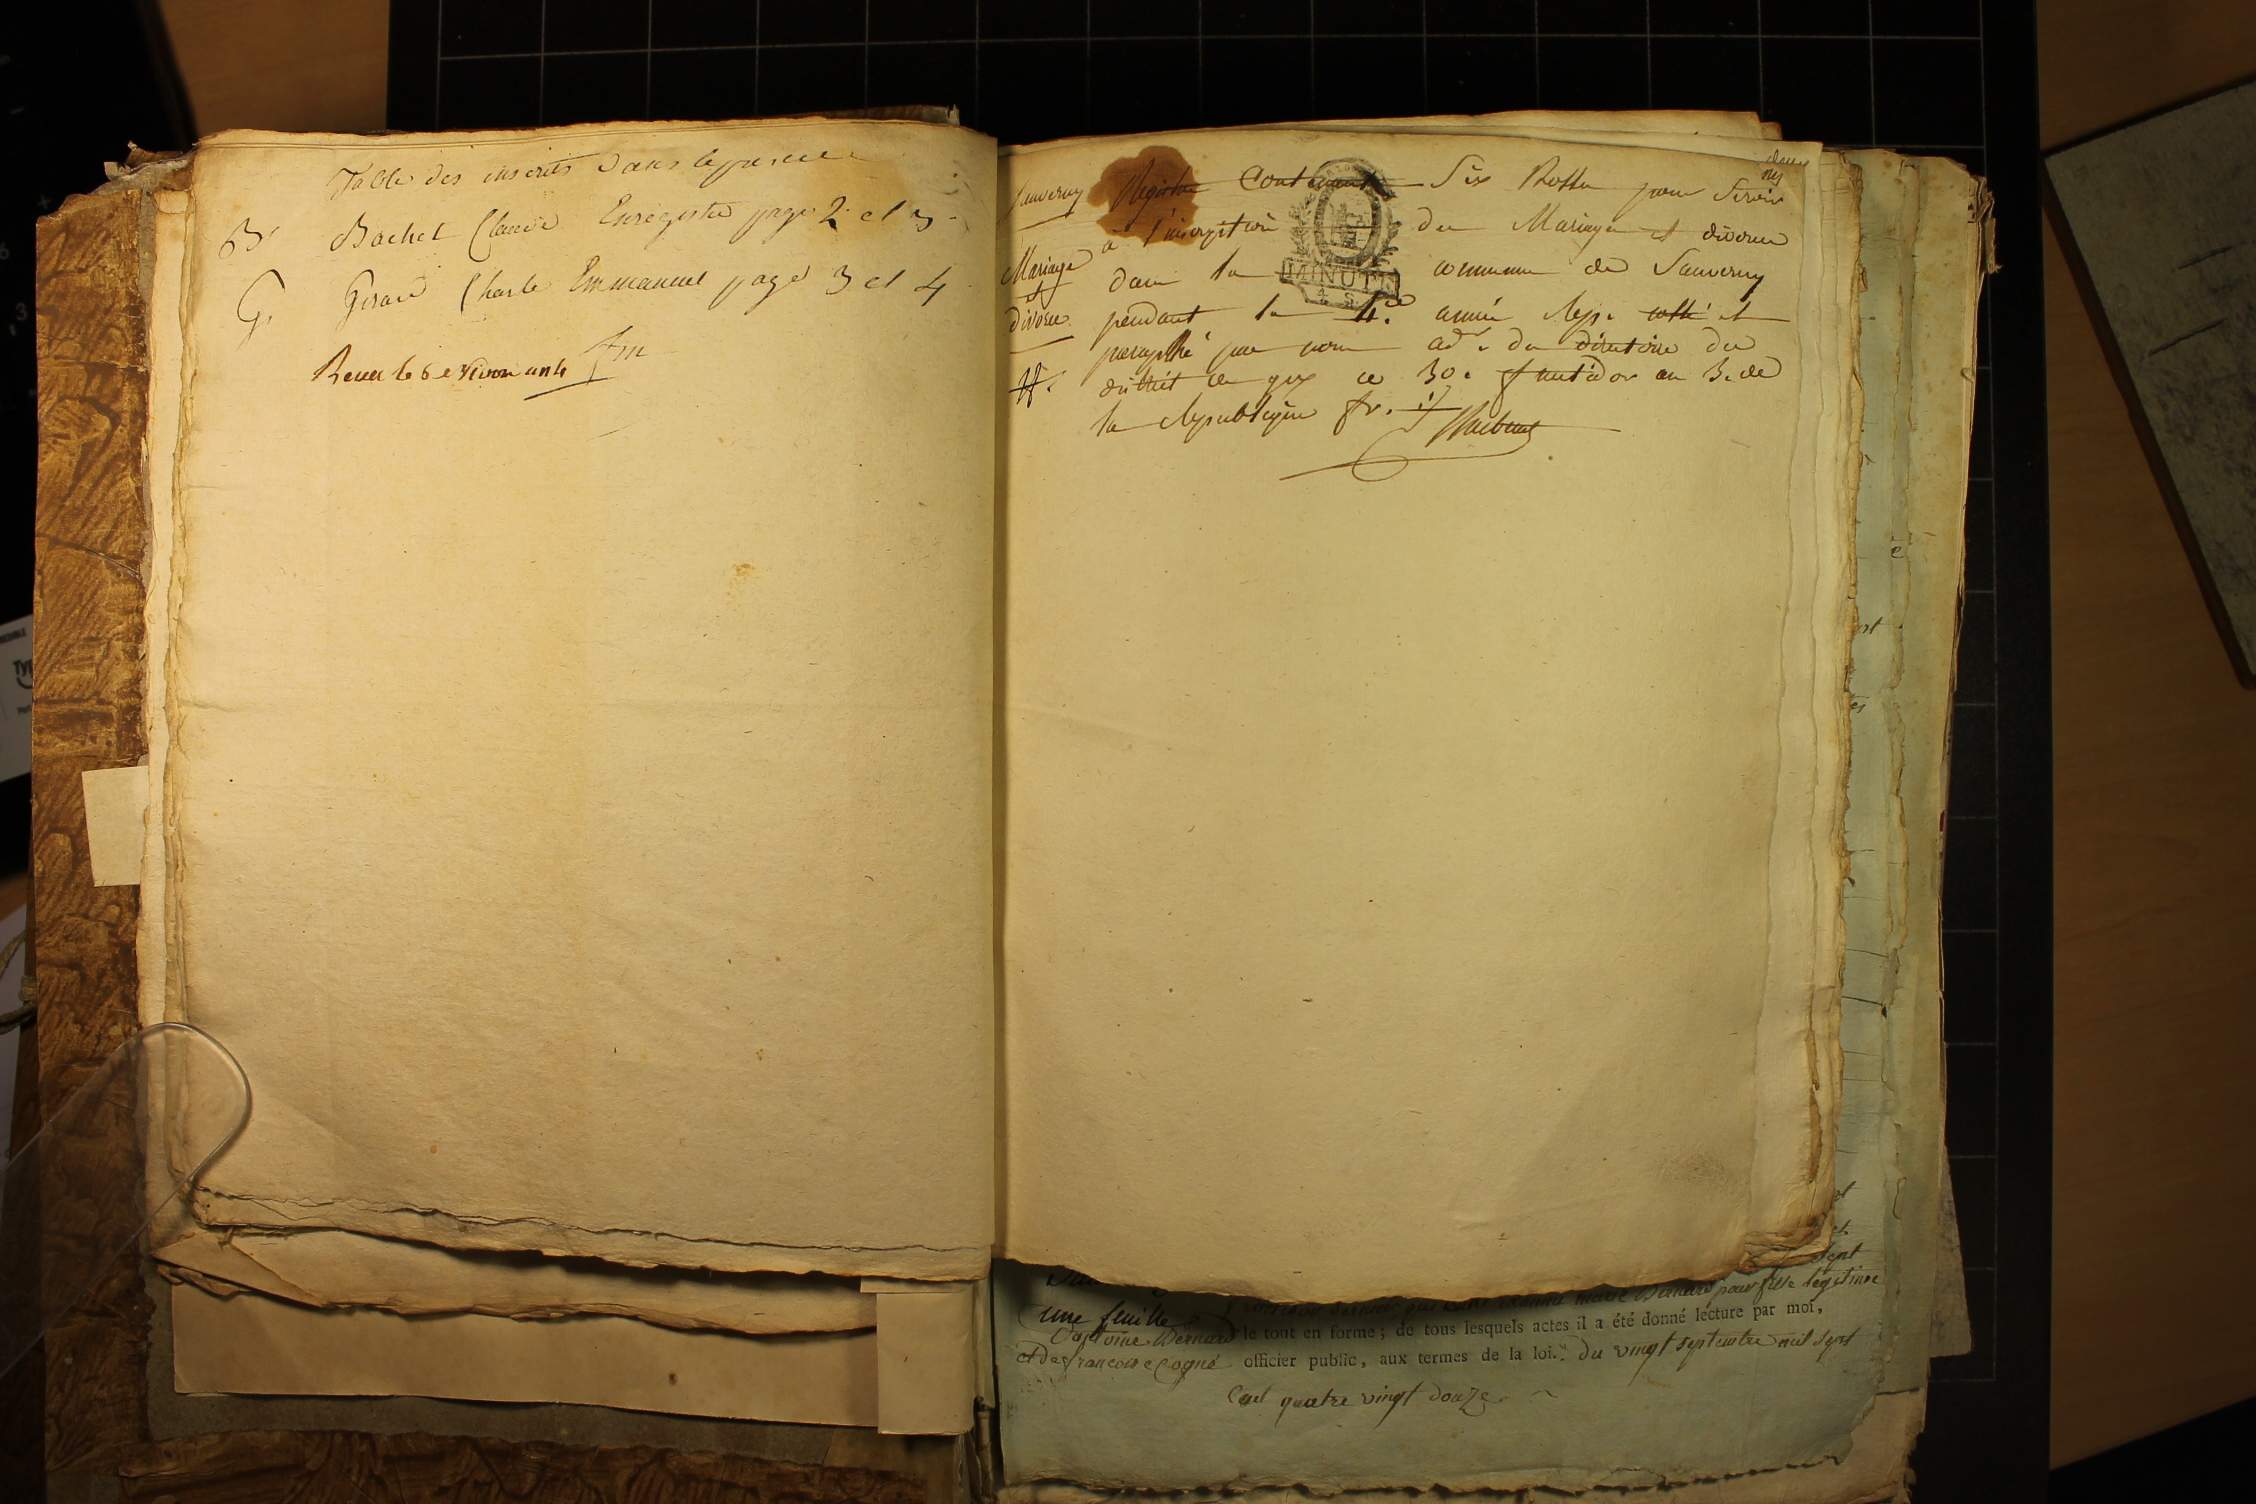 Table des inscrits dans le present
B. Bachet Claude Enregistré page 2 et 3
G. Girard Charle Emmanuel page 3 et 4
Recu le 6e an 4
Sauverny
Mariage
et
divorce
Registre Contenant Six pour Servir
à l'inscription des Mariages et divorce
dans la commune de Sauverny
pendant la 4e. année rep. cotté et
paraphé par nous ad. du directoire du
district de gex ce 30. fructidor an 3. de
la republique fr.
MINUT
4 S.
une feuille
D'antoine Bernard le tout en forme; de tous lesquels actes il a été donné lecture par moi,
et De francoise Cogné officier public, aux termes de la loi. du vingt septembre mil sept
Cent quatre vingt douze